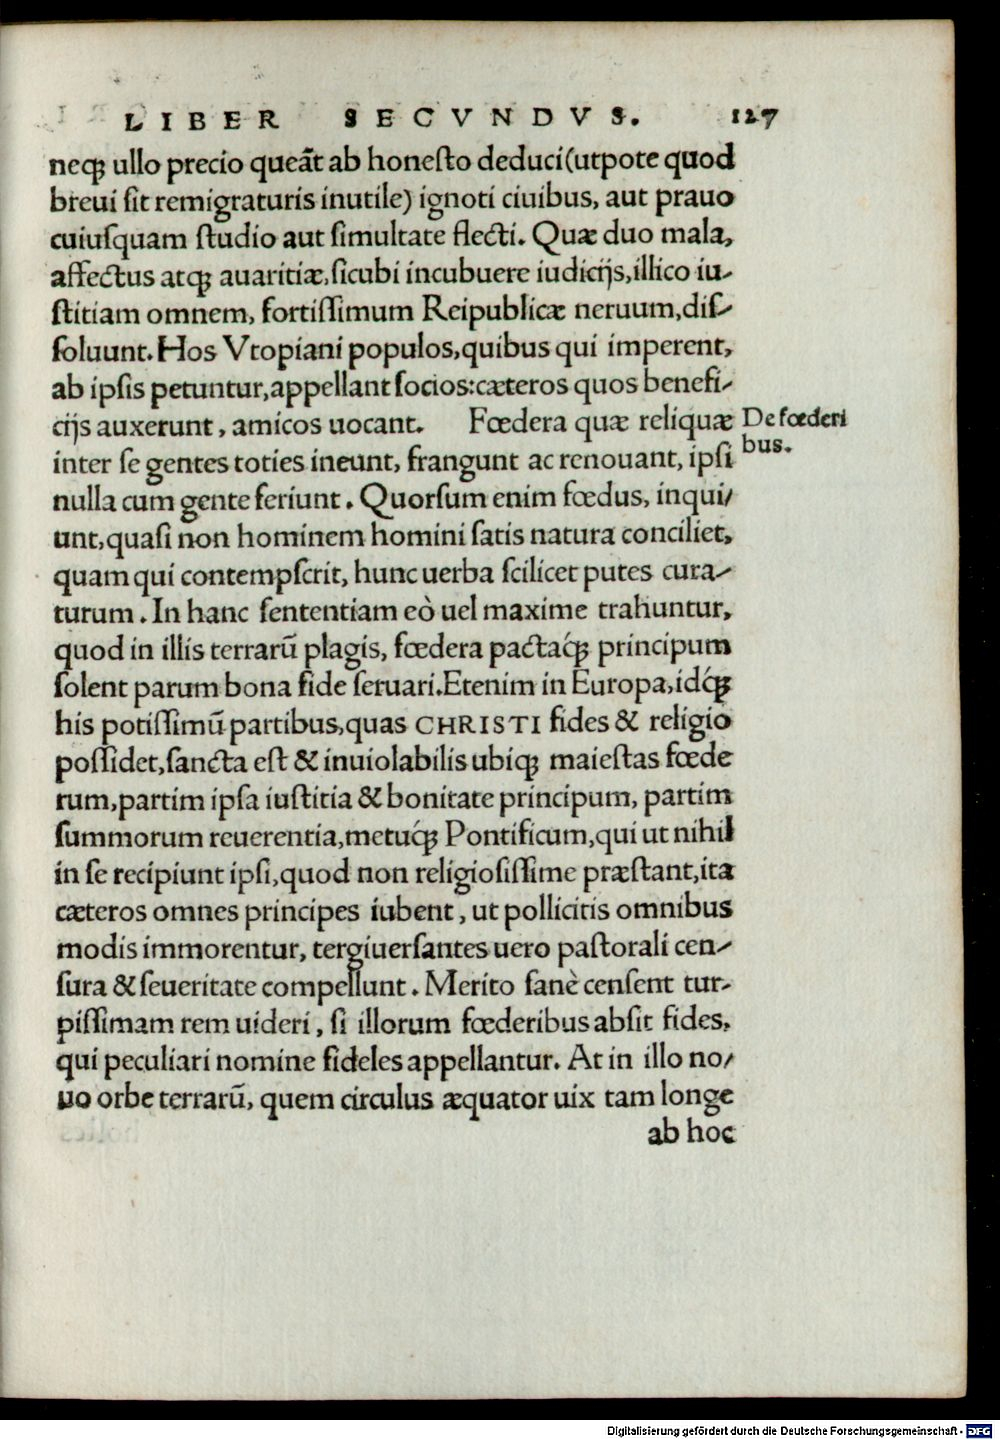 LIBER SECVNDVS. 127
neq; ullo precio queãt ab honesto deduci(utpote quod
breui sit remigraturis inutile) ignoti ciuibus, aut prauo
cuiusquam studio aut simultate flecti. Quæ duo mala,
affectus atq; auaritiæ, sicubi incubuere iudicijs, illico iu-
stitiam omnem, fortissimum Reipublicæ neruum, dis-
soluunt. Hos Vtopiani populos, quibus qui imperent,
ab ipsis petuntur, appellant socios: cæteros quos benefi-
cijs auxerunt, amicos uocant. Fœdera quæ reliquæ
De fœderi
bus.
inter se gentes toties ineunt, frangunt ac renouant, ipsi
nulla cum gente feriunt. Quorsum enim fœdus, inqui-
unt, quasi non hominem homini satis natura conciliet,
quam qui contempserit, hunc uerba scilicet putes cura-
turum. In hanc sententiam eò uel maxime trahuntur,
quod in illis terrarũ plagis, fœdera pactaq́; principum
solent parum bona fide seruari. Etenim in Europa, idq́;
his potissimũ partibus, quas CHRISTI fides & religio
possidet, sancta est & inuiolabilis ubiq; maiestas fœde
rum, partim ipsa iustitia & bonitate principum, partim
summorum reuerentia, metuq́; Pontificum, qui ut nihil
in se recipiunt ipsi, quod non religiosissime præstant, ita
cæteros omnes principes iubent, ut pollicitis omnibus
modis immorentur, tergiuersantes uero pastorali cen-
sura & seueritate compellunt. Merito sanè censent tur-
pissimam rem uideri, si illorum fœderibus absit fides,
qui peculiari nomine fideles appellantur. At in illo no-
uo orbe terrarũ, quem circulus æquator uix tam longe
ab hoc
Digitalisierung gefördert durch die Deutsche Forschungsgemeinschaft - DFG